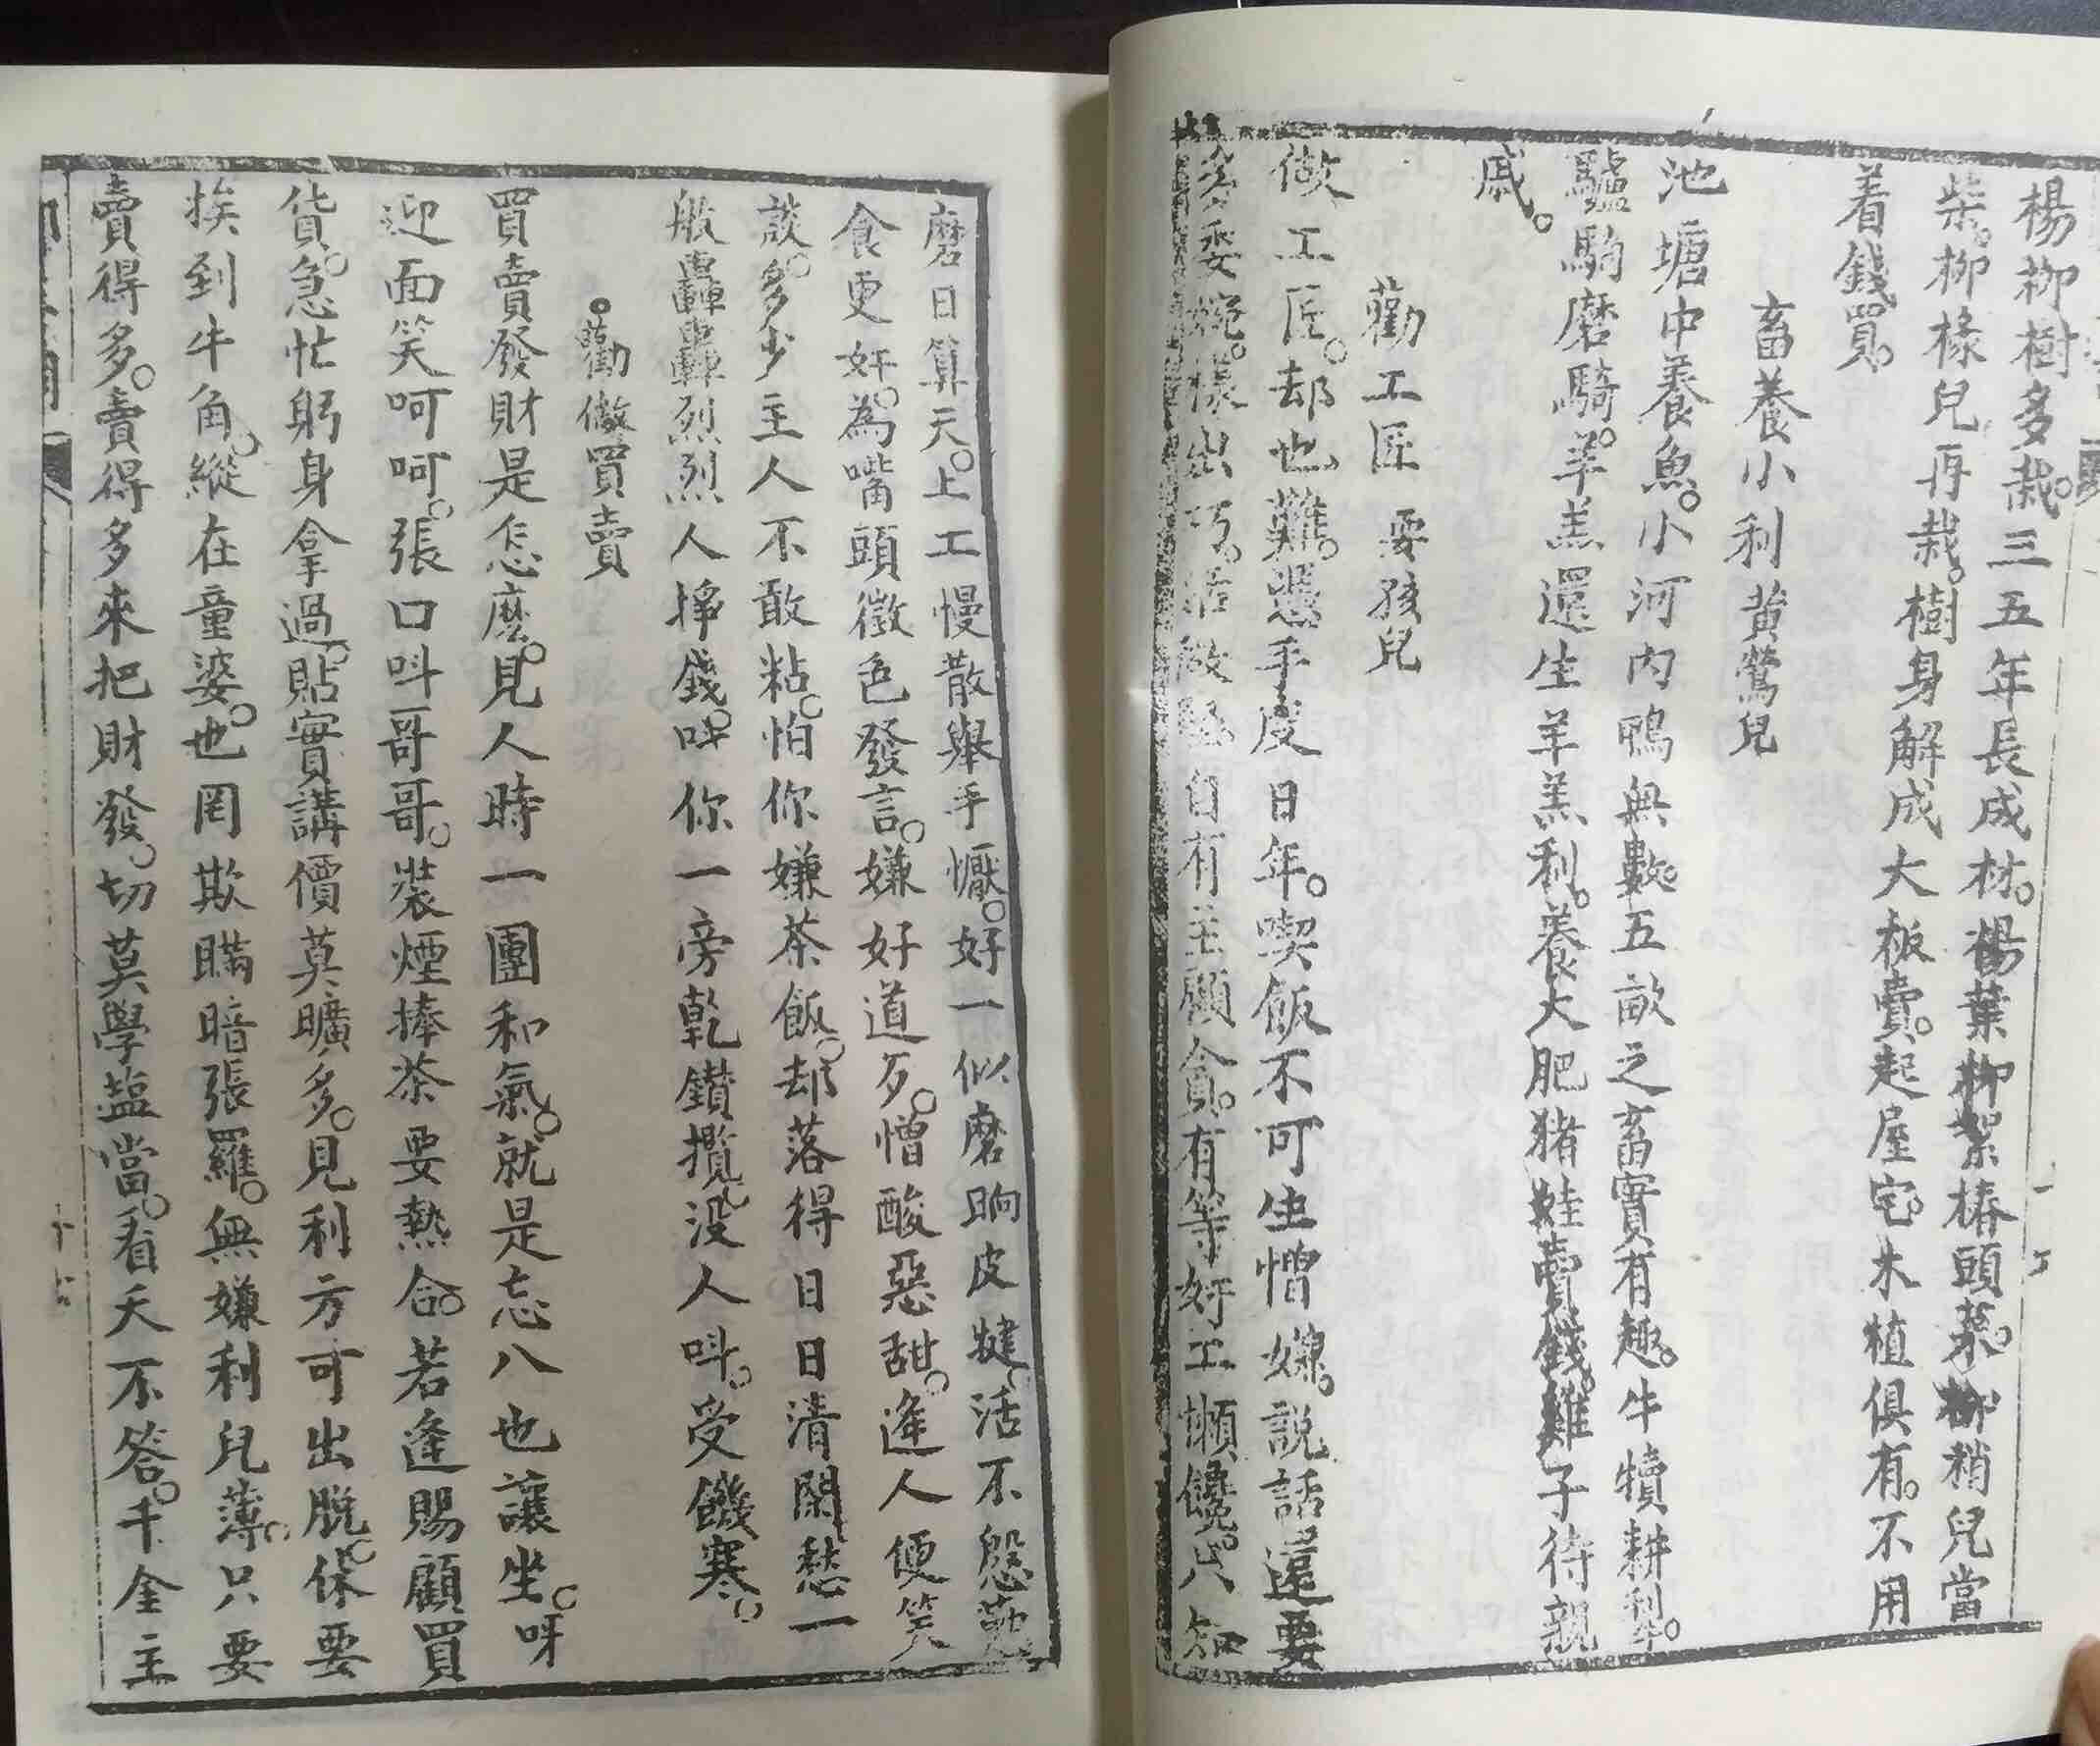 楊柳樹多栽。三五年長成材。楊葉柳絮椿頭菜。柳稍兒當
柴。柳椽兒再栽。樹身解成大板賣。起屋宅。木植俱有。不用
着錢買。
畜養小利 黄鶯兒
池塘中養魚。小河内鴨無數。五畝之畜實有趣。牛犢耕犁。
驢駒磨騎。羊羔還生羊羔利。養大肥猪鞋賣錢。雞子待親
戚。
勸工匠 耍孩兒
做工匠。却也難。憑手度日年。喫飯不可生憎嫌。説話還要
多委婉。樣出巧。活做堅。自有主顧貪。有等奸工懶饞。只知
磨日算天。上工慢散舉手懨。好一似磨晌皮犍。活不慇懃
食更奸。為嘴頭徵色發言。嫌好道歹。憎酸惡甜。逢人便笑
談。多少主人不敢粘。怕你嫌茶飯。却落得日日清閑愁一
般轟轟烈烈人掙錢。呌你一旁乾鑽攬。没人呌。受饑寒。
勸做買賣
買賣發財是怎麽。見人時一團和氣。就是忘八也讓坐。呀
迎面笑呵呵。張口呌哥哥。裝煙捧茶要熱合。若逢賜顧買
貨。急忙躬身拿過。貼實講價莫曠多。見利方可出脱。休要
挨到牛角。縱在童婆。也罔欺瞞暗張羅。無嫌利兒薄。只要
賣得多。賣得多來把財發。切莫學盐當。看天不答。千金主